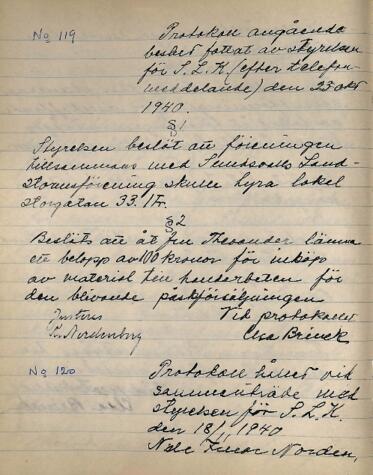 No 119
Protokoll angående
beslut fattat av styrelsen
för S.L.K. (efter telefon-
meddelande) den 23 okt
1940.
§1
Styrelsen beslöt att föreningen
tillsammans med Sundsvalls Land-
stormsförening skulle hyra lokal
Storgatan 33. 1 tr.
§2
Beslöts att åt fru Theander lämna
ett belopp av 100 kronor för inköp
av material till handarbeten för
den blivande påskförsäljningen
Justeras
Nordenberg
Vid protokollet
Elsa Brinck
No 120
Protokoll hållet vid
sammanträde med
styrelsen för S.L.K.
den 18/1, 1940
Närv. Fruar Norden,